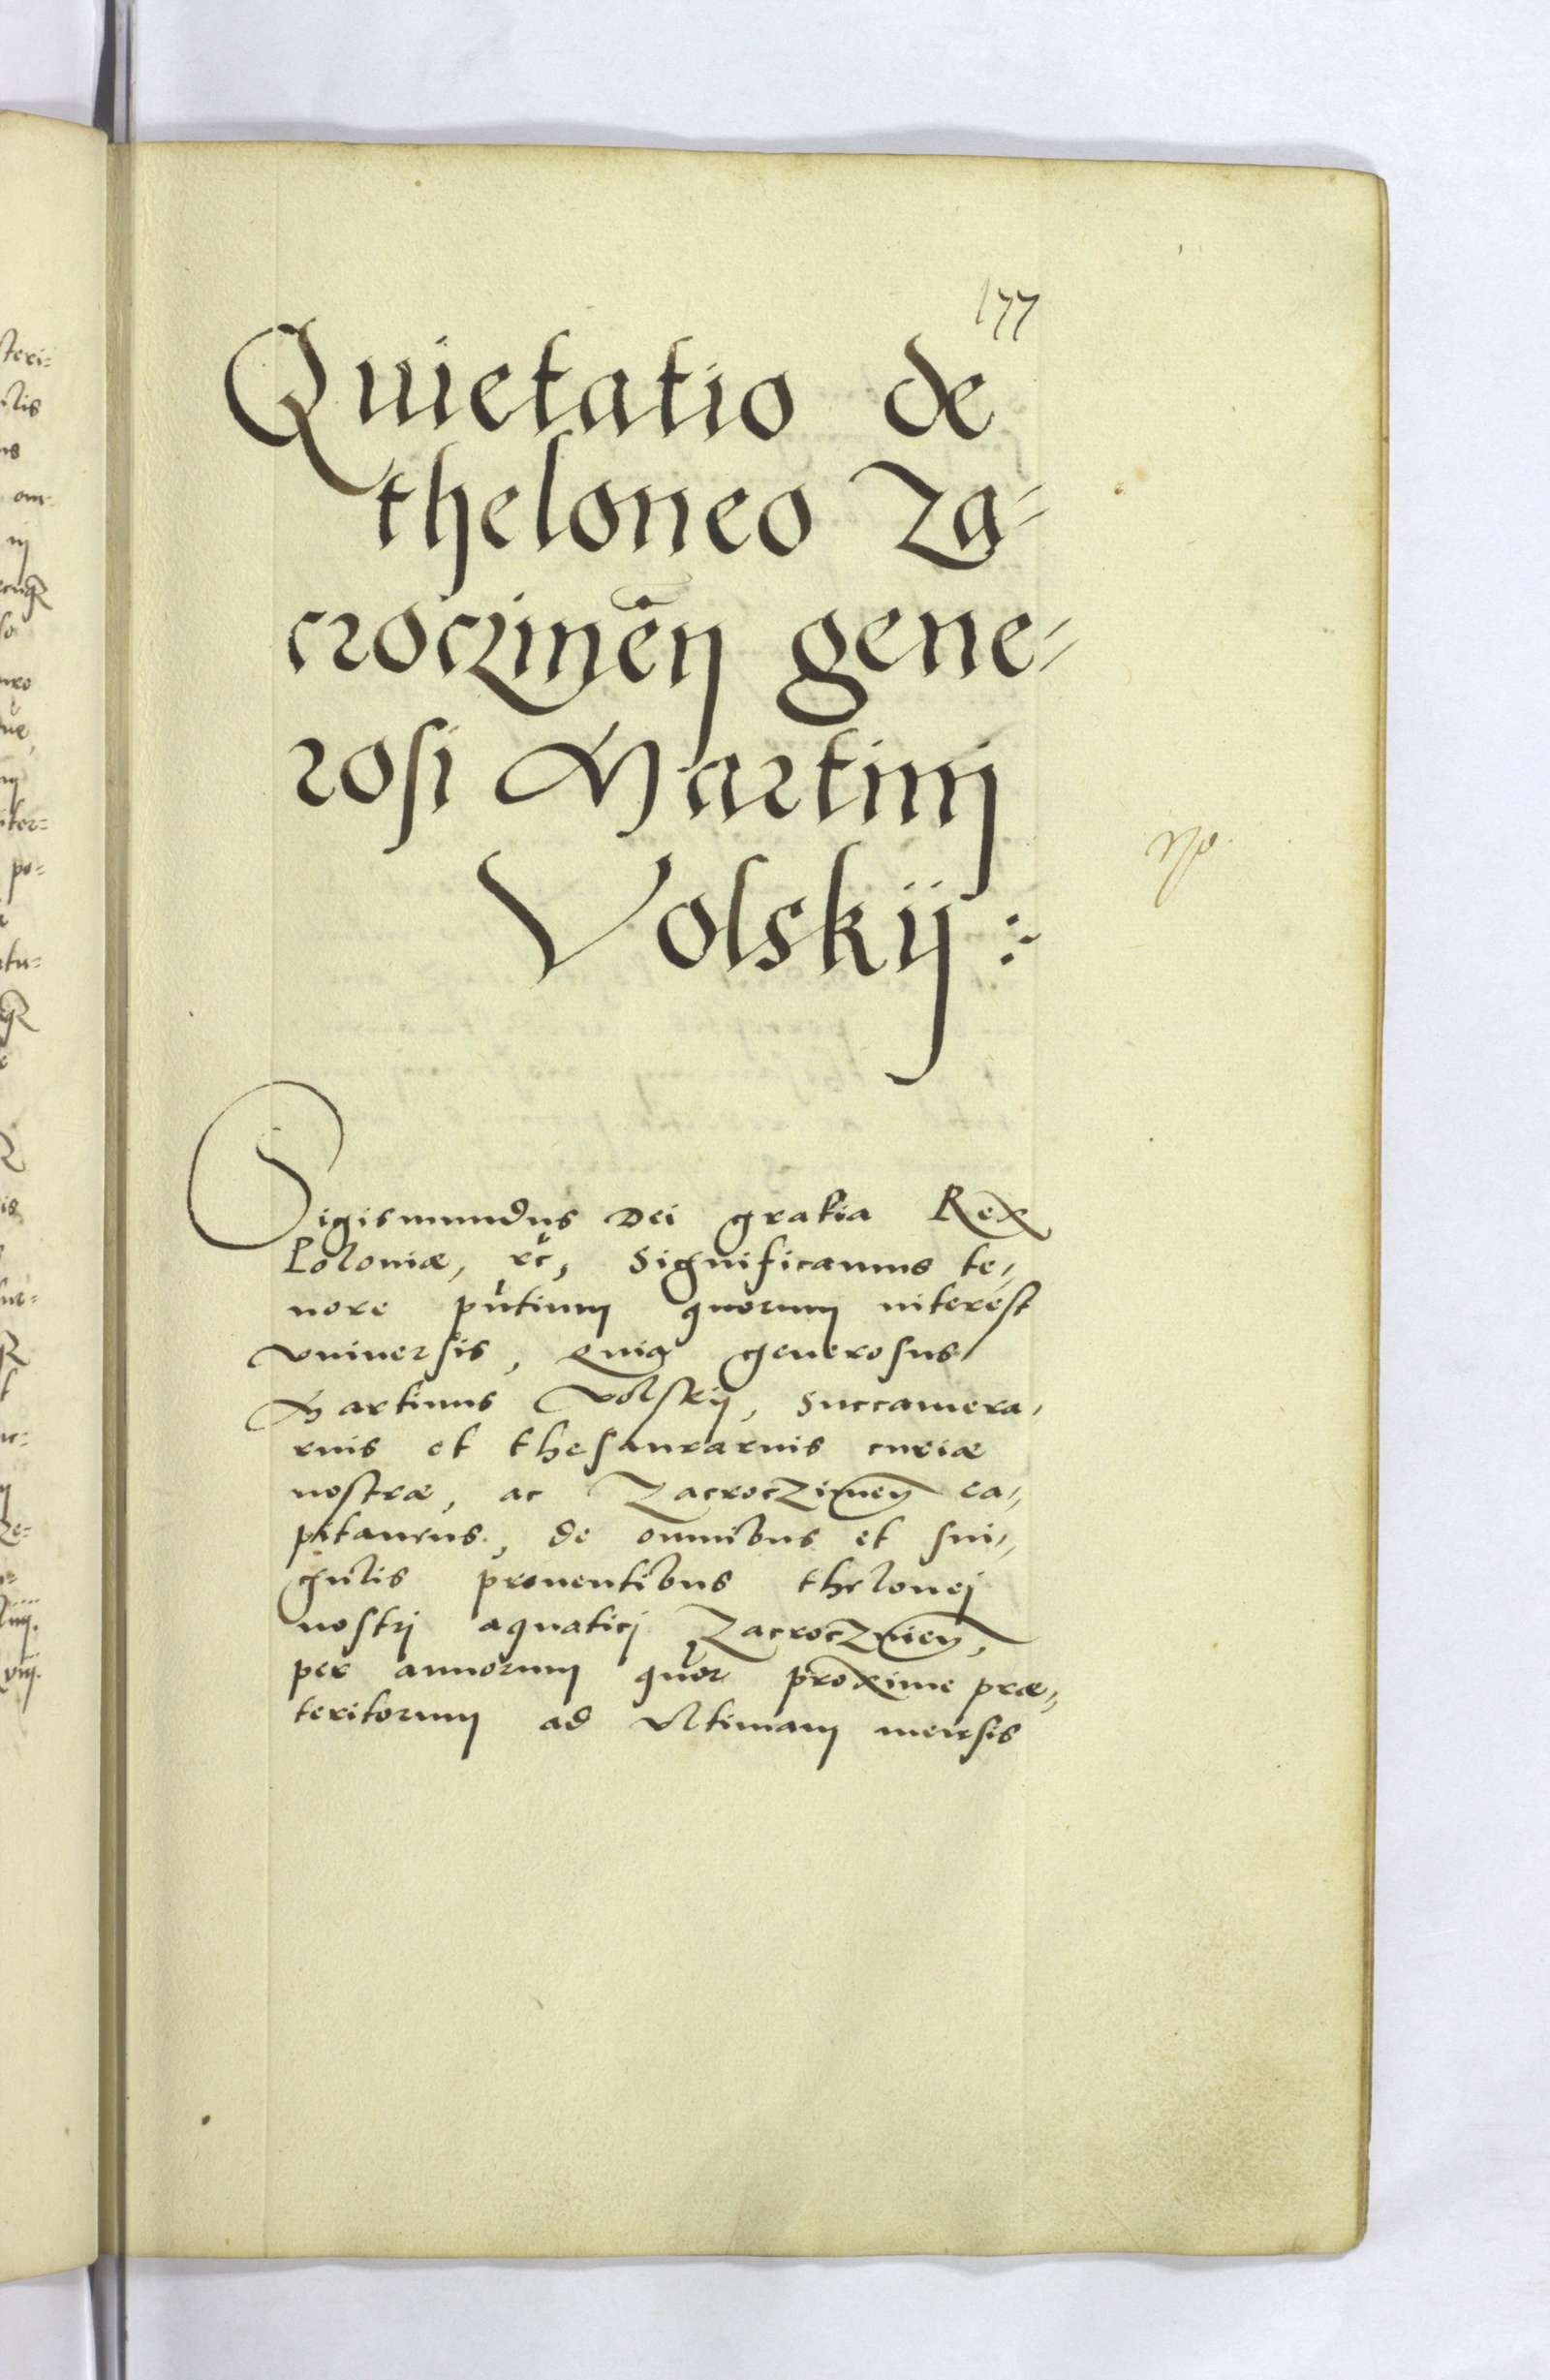 177
Quietatio de
theloneo Za=
croczimen̄ gene=
rosi Martinj
Volskij :
Sigismundus Dei gratia Rex
Poloniæ, etc, Significamus te=
nore pñtium quorum interest
vniuersis, Quia generosus
Martinus Volskij, Succamera=
rius et thesaurarius curiæ
nostræ, ac Zacroczimen̄ ca=
pitaneus, de omnibus et sin=
gulis prouentibus thelonej
nostrj aquaticj Zacroczmien̄,
per annorum quor proxime præ=
teritorum ad vltimam mensis